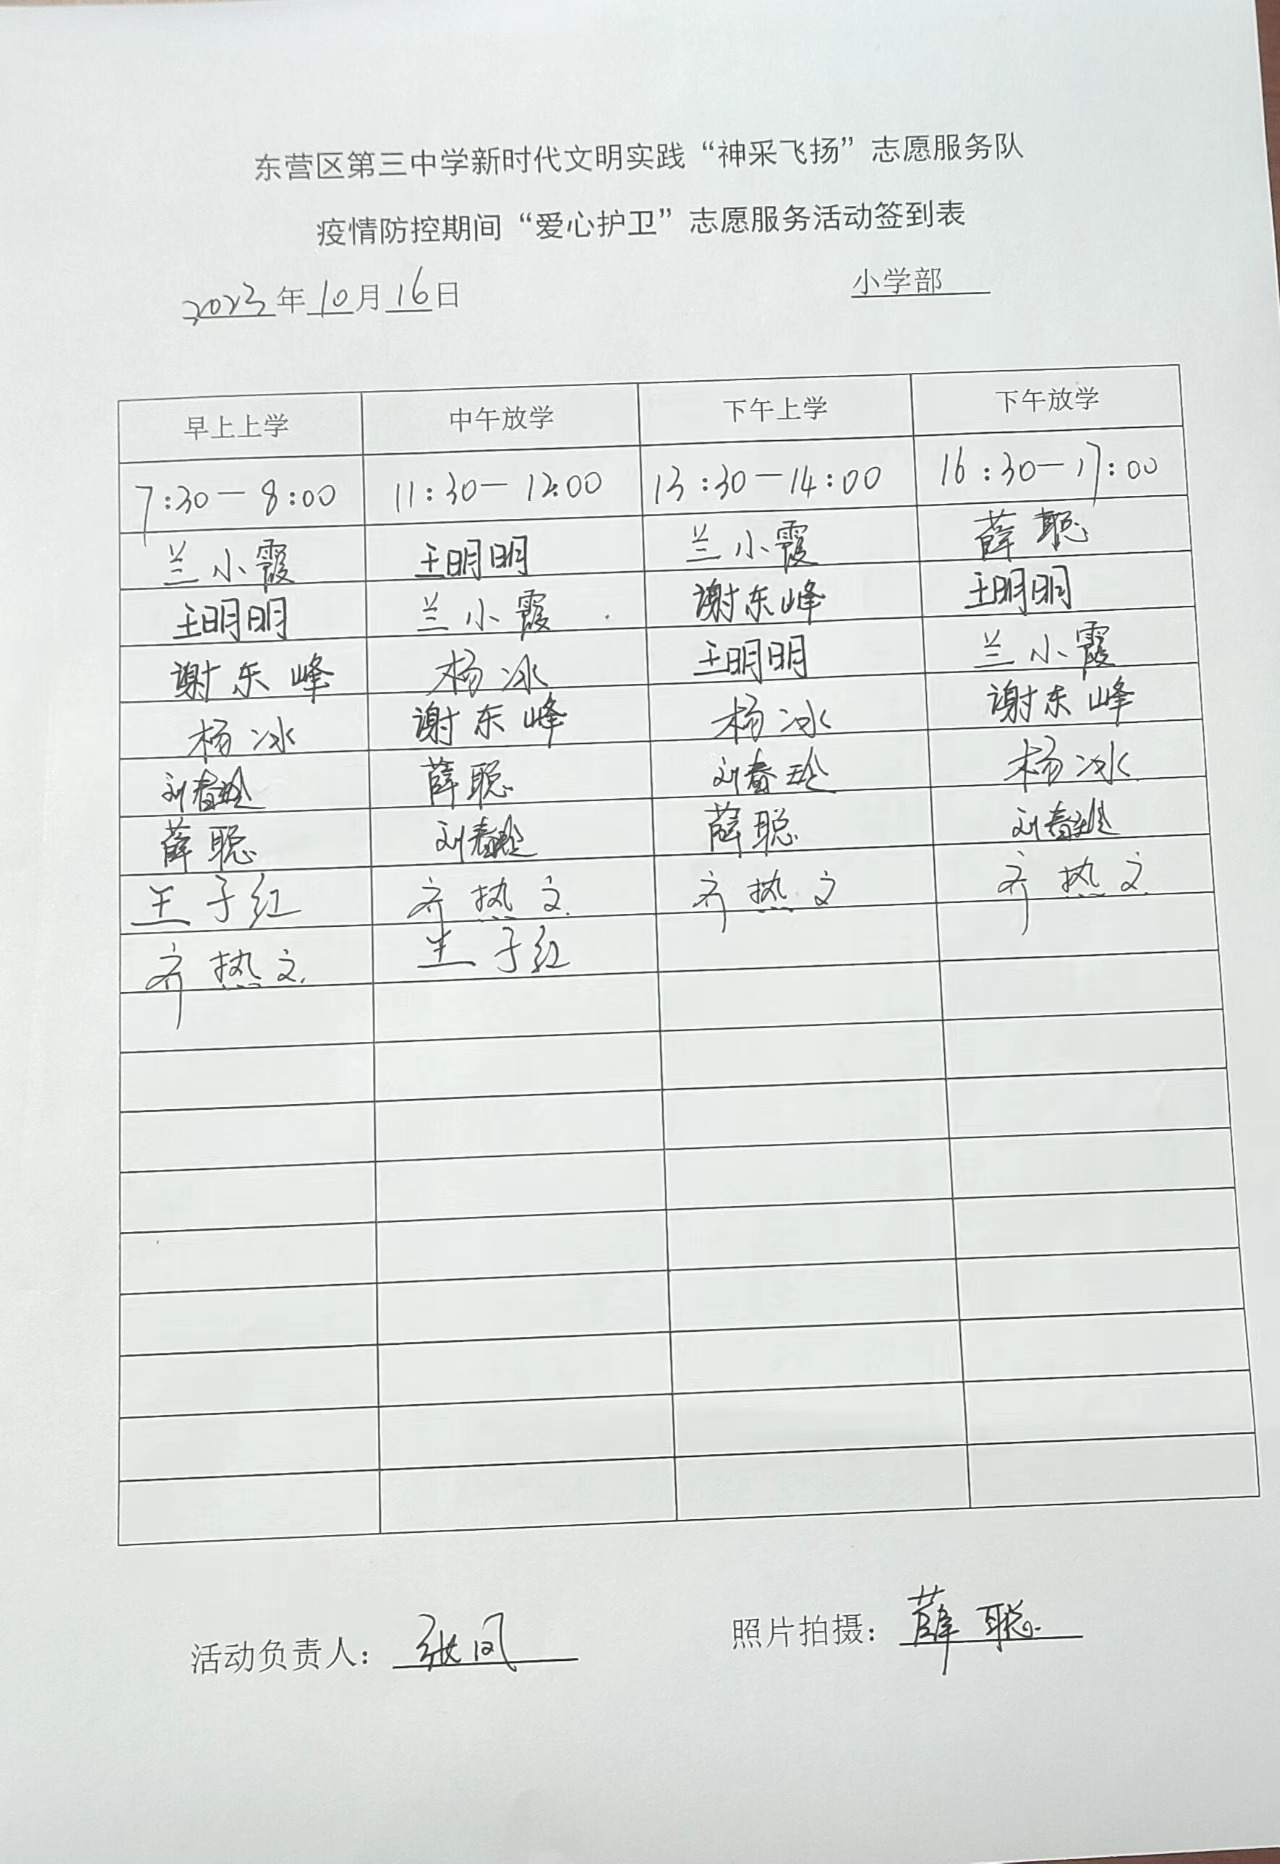 东营区第三中学新时代文明实践“神采飞扬”志愿服务队
疫情防控期间“爱心护卫”志愿服务活动签到表
2023年10月16日 小学部
早上上学 中午放学 下午上学 下午放学
7:30-8:00 11:30-12:00 13:30-14:00 16:30-17:00
兰小霞 王明明 兰小霞 薛聪
王明明 兰小霞 谢东峰 王明明
谢东峰 杨冰 王明明 兰小霞
杨冰 谢东峰 杨冰 谢东峰
刘春玲 薛聪 刘春玲 杨冰
薛聪 刘春玲 薛聪 刘春玲
王子红 齐热文 齐热文 齐热文
齐热文 王子红
活动负责人：张凤 照片拍摄：薛聪